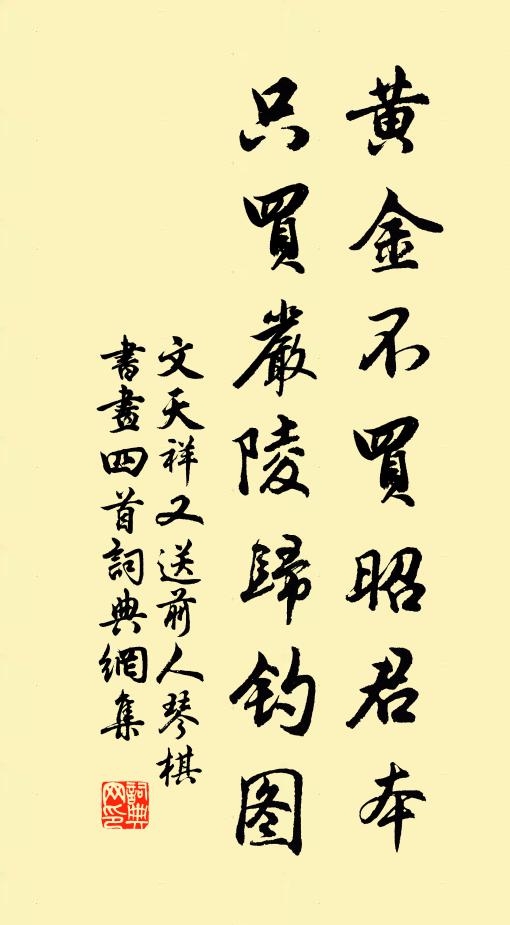 黄金不買昭君本
只買嚴陵歸钓图
文天祥又送前人琴棋
書畫四首詞典網集
詞典
网印